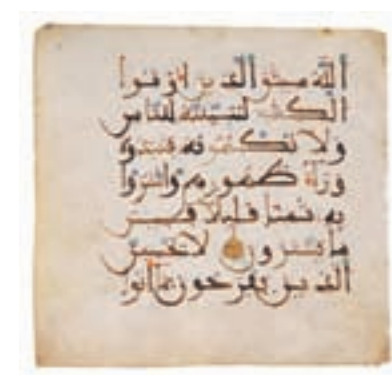 الله ميثق الذين اوتوا
الكتب لتبيننه للناس
ولا تكتمونه فنبذوه
وراء ظهورهم واشتروا
به ثمنا قليلا فبئس
ما يشترون لا تحسبن
الذين يفرحون بما اتوا